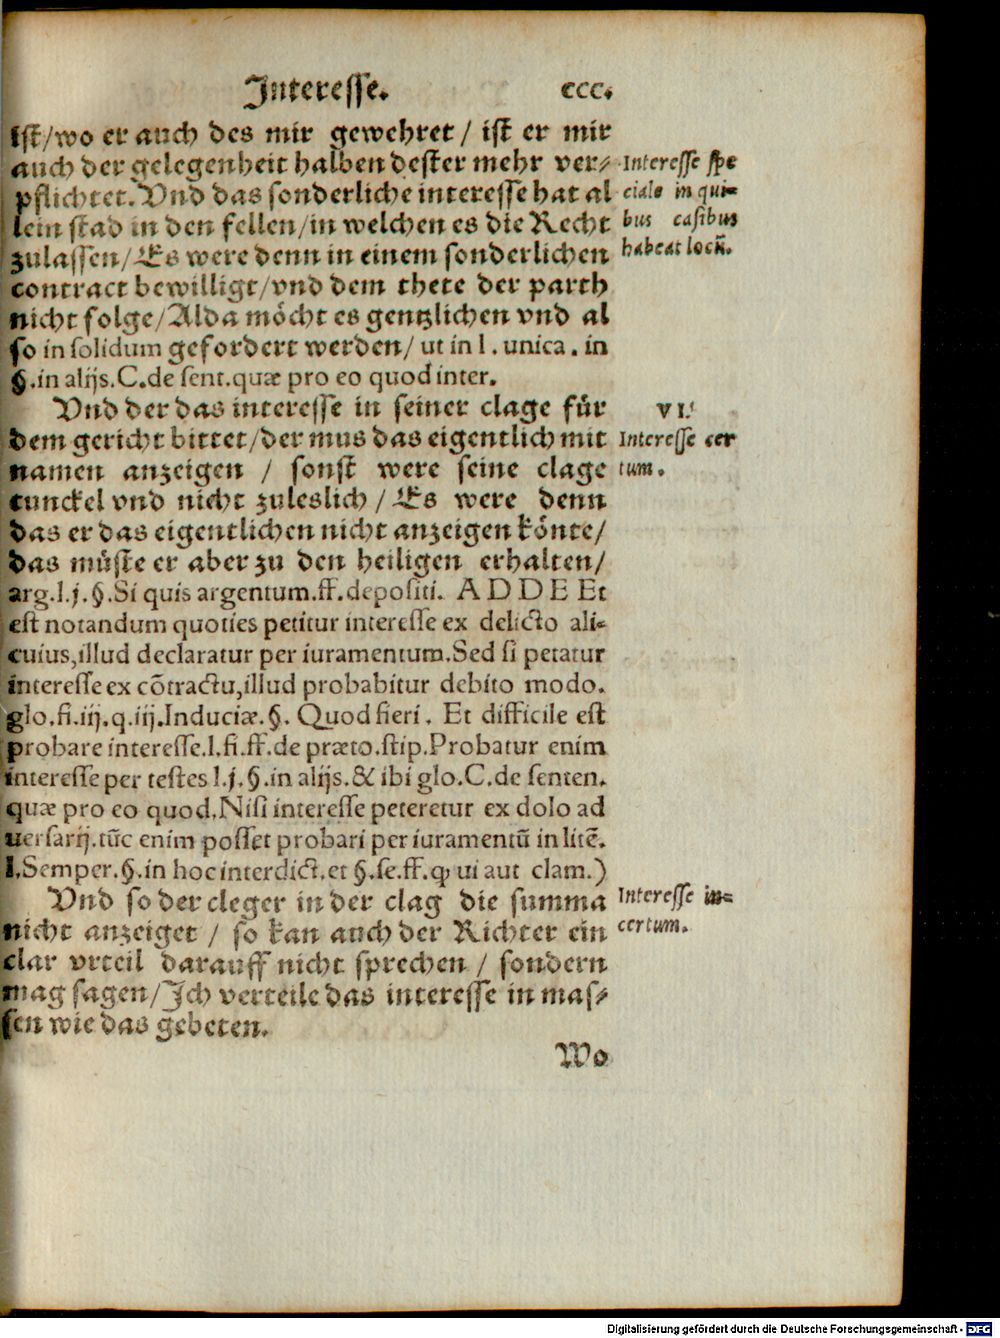 Interesse. ccc.
ist/wo er auch des mir gewehret / ist er mir
auch der gelegenheit halben dester mehr ver-
pflichtet. Vnd das sonderliche interesse hat al
lein stad in den fellen/in welchen es die Recht
zulassen/Es were denn in einem sonderlichen
contract bewilligt/vnd dem thete der parth
nicht folge/Alda möcht es gentzlichen vnd al
so in solidum gefordert werden/ ut in l. unica. in
§.in alijs.C.de sent.quæ pro eo quod inter.
Interesse spe
ciale in qui-
bus casibus
habeat locū.
Vnd der das interesse in seiner clage für
dem gericht bittet/der mus das eigentlich mit
namen anzeigen / sonst were seine clage
tunckel vnd nicht zuleslich / Es were denn
das er das eigentlichen nicht anzeigen könte/
das müste er aber zu den heiligen erhalten/
arg.l.j.§.Si quis argentum.ff.depositi. ADDE Et
est notandum quoties petitur interesse ex delicto ali-
cuius,illud declaratur per iuramentum.Sed si petatur
interesse ex cōtractu,illud probabitur debito modo.
glo.fi.iij.q.iij.Induciæ.§. Quod fieri. Et difficile est
probare interesse.l.fi.ff.de præto.stip.Probatur enim
interesse per testes l.j.§.in alijs.& ibi glo.C.de senten.
quæ pro eo quod.Nisi interesse peteretur ex dolo ad
uersarij.tūc enim posset probari per iuramentū in litē.
l.Semper.§.in hoc interdict.et §.se.ff.ꝙ ui aut clam.)
VI.
Interesse cer
tum.
Vnd so der cleger in der clag die summa
nicht anzeiget / so kan auch der Richter ein
clar vrteil darauff nicht sprechen / sondern
mag sagen/Ich verteile das interesse in mas-
sen wie das gebeten.
Interesse in-
certum.
Wo
Digitalisierung gefördert durch die Deutsche Forschungsgemeinschaft - DFG